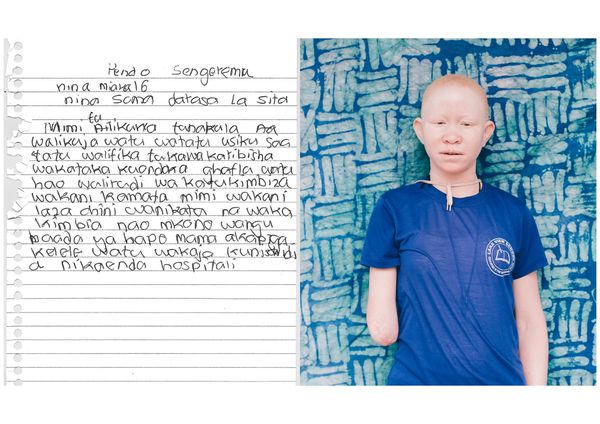 Pendo Sengerema
nina miaka 16
nina soma darasa la sita
tu
Mimi nilikuwa tunakula
walikuja watu watatu usiku saa
tatu walifika tukawakaribisha
wakataka kuondoka ghafla watu
hao walirudi wakatukimbiza
wakani kamata mimi wakani
laza chini wanikata na waka
kimbia nao mkono wangu
baada ya hapo mama akapiga
kelele watu wakaja
a nikaenda hospitali